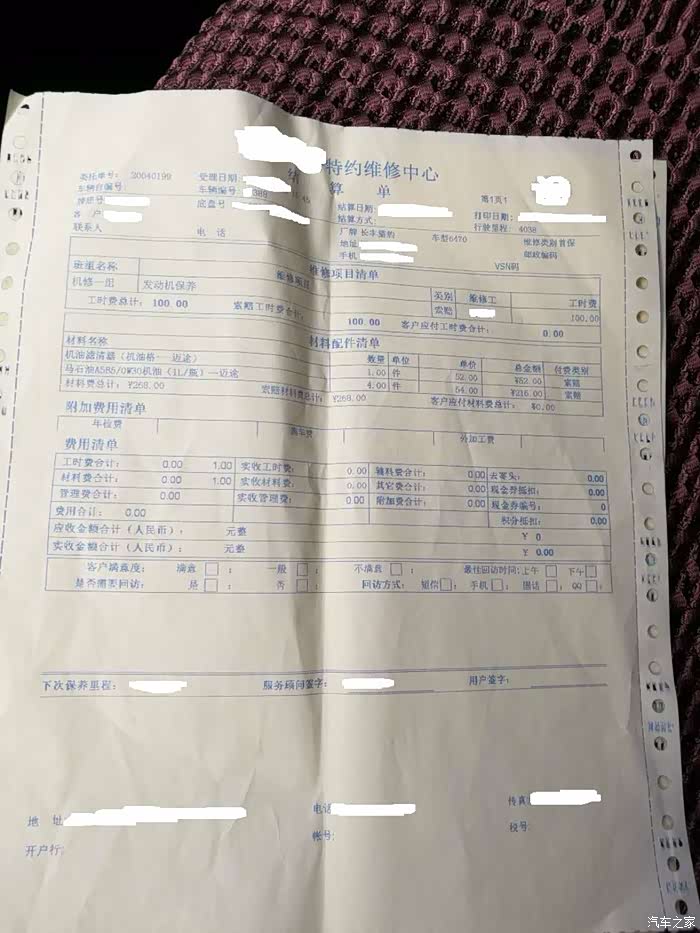 特约维修中心
结 算 单
委托单号: 20040199 受理日期: 第1页1
车辆自编号: 车辆编号: 389 45 结算日期: 打印日期:
牌照号 底盘号 结算方式: 行驶里程: 4038
客 户 厂牌 长丰猎豹 车型6470 维修类别首保
联系人 电 话 地址 邮政编码
手机 VSN码
维修项目清单
班组名称 维修项目 类别 维修工 工时费
机修一组 发动机保养 索赔 100.00
工时费总计: 100.00 索赔工时费总计: 100.00 客户应付工时费合计: 0.00
材料配件清单
材料名称 数量 单位 单价 总金额 付费类别
机油滤清器（机油格一迈途） 1.00 件 52.00 ¥52.00 索赔
马石油A585/0W30机油（1L/瓶）一迈途 4.00 件 54.00 ¥216.00 索赔
材料费总计: ¥268.00 索赔材料费总计: ¥268.00 客户应付材料费总计: ¥0.00
附加费用清单
年检费 外加工费
费用清单
工时费合计: 0.00 1.00 实收工时费: 0.00 辅料费合计: 0.00 去零头: 0.00
材料费合计: 0.00 1.00 实收材料费: 0.00 其它费合计: 0.00 现金券抵扣: 0.00
管理费合计: 0.00 实收管理费: 0.00 附加费合计: 0.00 现金券编号: 0
费用合计: 0.00 积分抵扣: 0.00
应收金额合计（人民币）: 元整 ¥ 0
实收金额合计（人民币）: 元整 ¥ 0.00
客户满意度: 满意 ; 一般 ; 不满意 ; 最佳回访时间:上午 下午
是否需要回访: 是 ; 否 ; 回访方式: 短信 ; 手机 ; 固话 ; QQ ;
下次保养里程: 服务顾问签字: 用户签字:
地 址 电话 传真
开户行: 帐号: 税号:
汽车之家